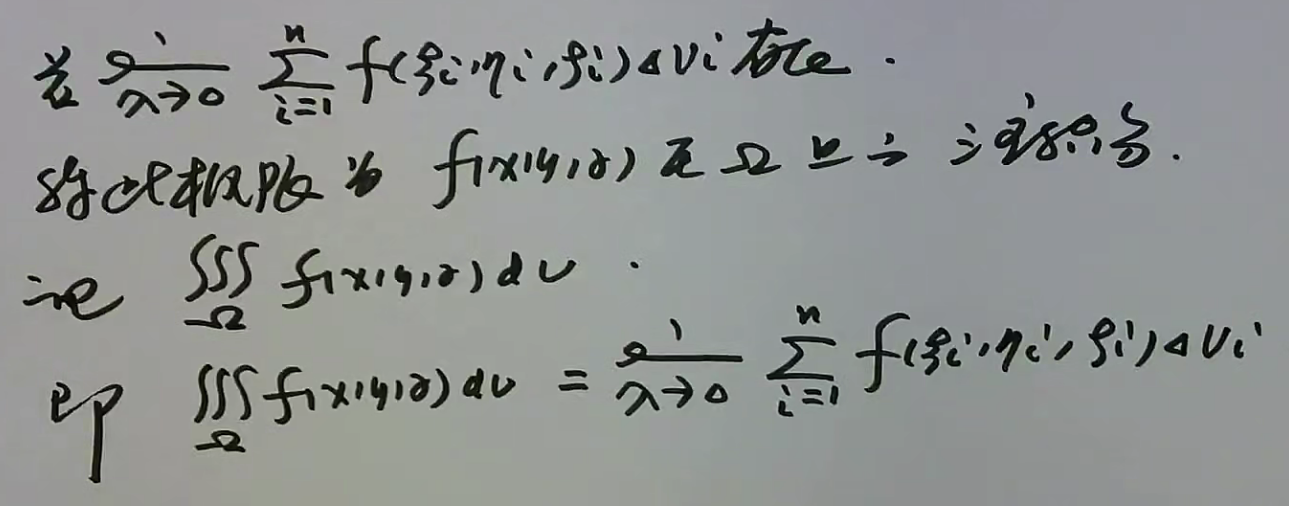 若 lim λ→0 ∑ i=1 n f(ξi, ηi, ζi)Δvi 存在.
称此极限为 f(x,y,z) 在 Ω 上的三重积分.
记 ∭Ω f(x,y,z)dv.
即 ∭Ω f(x,y,z)dv = lim λ→0 ∑ i=1 n f(ξi, ηi, ζi)Δvi